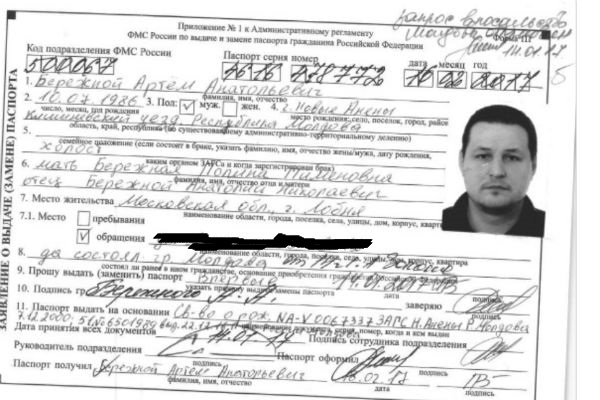 запрос в посольство
Молдовы
Приложение № 1 к Административному регламенту
ФМС России по выдаче и замене паспорта гражданина Российской Федерации
14.01.17
Код подразделения ФМС России Паспорт серия номер дата месяц год
500067 278772 10 02 2017
1. Бережной Артём Анатольевич
фамилия, имя, отчество
2. 11.07.1986 3. Пол: ✓ муж. жен. 4. г. Новые Анены
число, месяц, год рождения место рождения: село, поселок, город, район
уезд Республика Молдова
область, край, республика (по существовавшему административно-территориальному делению)
5. холост
семейное положение (если состоит в браке, указать фамилию, имя, отчество жены/мужа, дату рождения,
каким органом ЗАГСа и когда зарегистрирован брак)
6. мать Бережная Полина
фамилия, имя, отчество отца и матери
отец Бережной Анатолий Николаевич
7. Место жительства Московская обл., г. Лобня
7.1. Место пребывания
наименование области, города, поселка, села, улицы, дом, корпус, квартира
✓ обращения
наименование области, города, поселка, села, улицы, дом, корпус, квартира
8. да состоял гр. Молдова
состоял ли ранее в ином гражданстве, основание приобретения гражданства Российской Федерации
9. Прошу выдать (заменить) паспорт
указать причину выдачи, замены паспорта
10. Подпись гр. Бережного А.А. заверяю
подпись
11. Паспорт выдан на основании Св-во о рож. NA-V 0067337 ЗАГС Н. Анены Р. Молдова
7.12.2000
номер, кем и когда выдан
Дата принятия всех документов 14.01.17 Подпись сотрудника подразделения
подпись
Руководитель подразделения Паспорт оформил
подпись подпись
Паспорт получил Бережной Артём Анатольевич 02.17
фамилия, имя, отчество дата подпись
ЗАЯВЛЕНИЕ О ВЫДАЧЕ (ЗАМЕНЕ) ПАСПОРТА